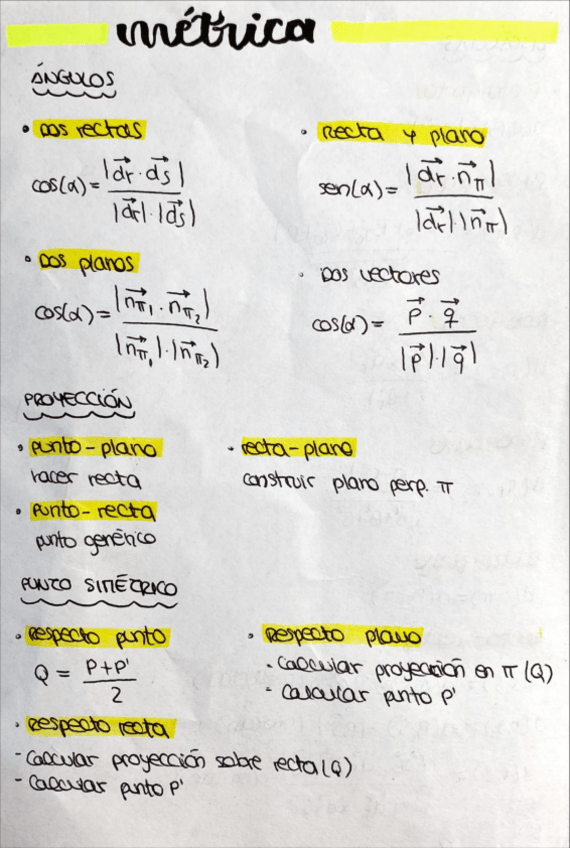 métrica
ÁNGULOS
• Dos rectas
cos(α) = |d⃗r · d⃗s| / |d⃗r| · |d⃗s|
• Recta y plano
sen(α) = |d⃗r · n⃗π| / |d⃗r| · |n⃗π|
• Dos planos
cos(α) = |n⃗π₁ · n⃗π₂| / |n⃗π₁| · |n⃗π₂|
· Dos vectores
cos(α) = p⃗ · q⃗ / |p⃗| · |q⃗|
PROYECCIÓN
• punto-plano
hacer recta
• recta-plano
construir plano perp. π
• punto-recta
punto genérico
PUNTO SIMÉTRICO
• Respecto punto
Q = P+P' / 2
• Respecto plano
- Calcular proyección en π (Q)
- Calcular punto P'
• Respecto recta
- Calcular proyección sobre recta (Q)
- Calcular punto P'